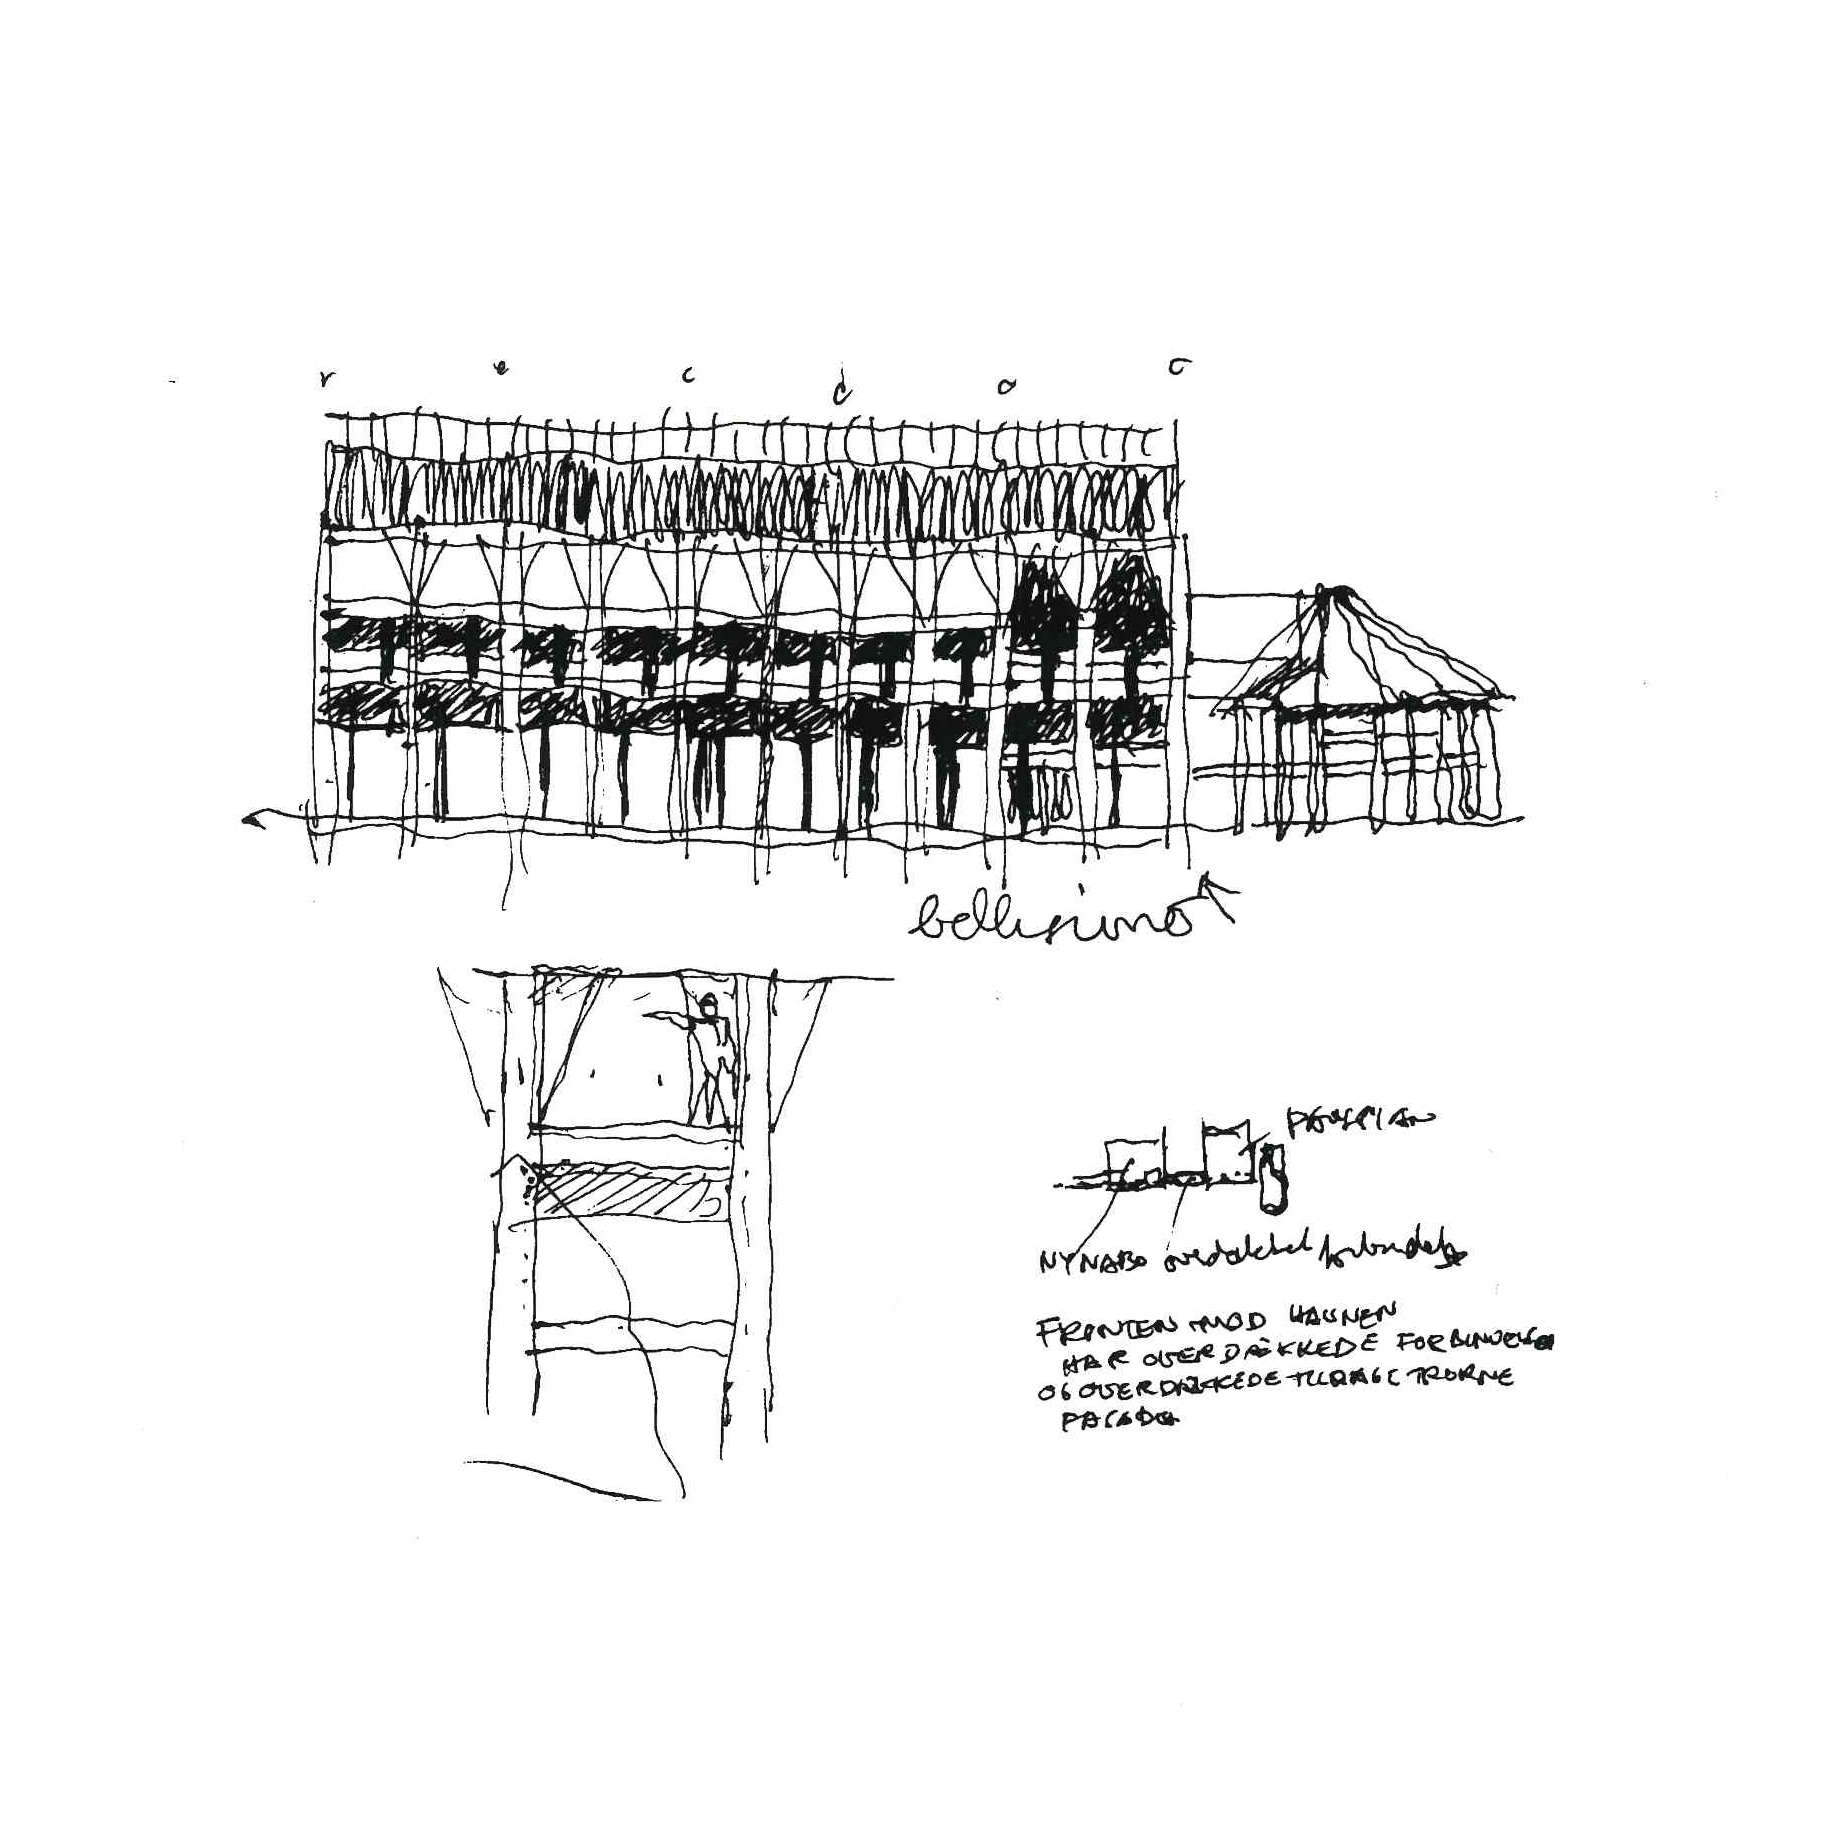 r e c d o o
bellissimo
PAUSTIAN
NYNABO overdækket forbindelse
FRONTEN MOD HAVNEN
HAR OVERDÆKKEDE FORBINDELSE
OG OVERDÆKKEDE
FACADER